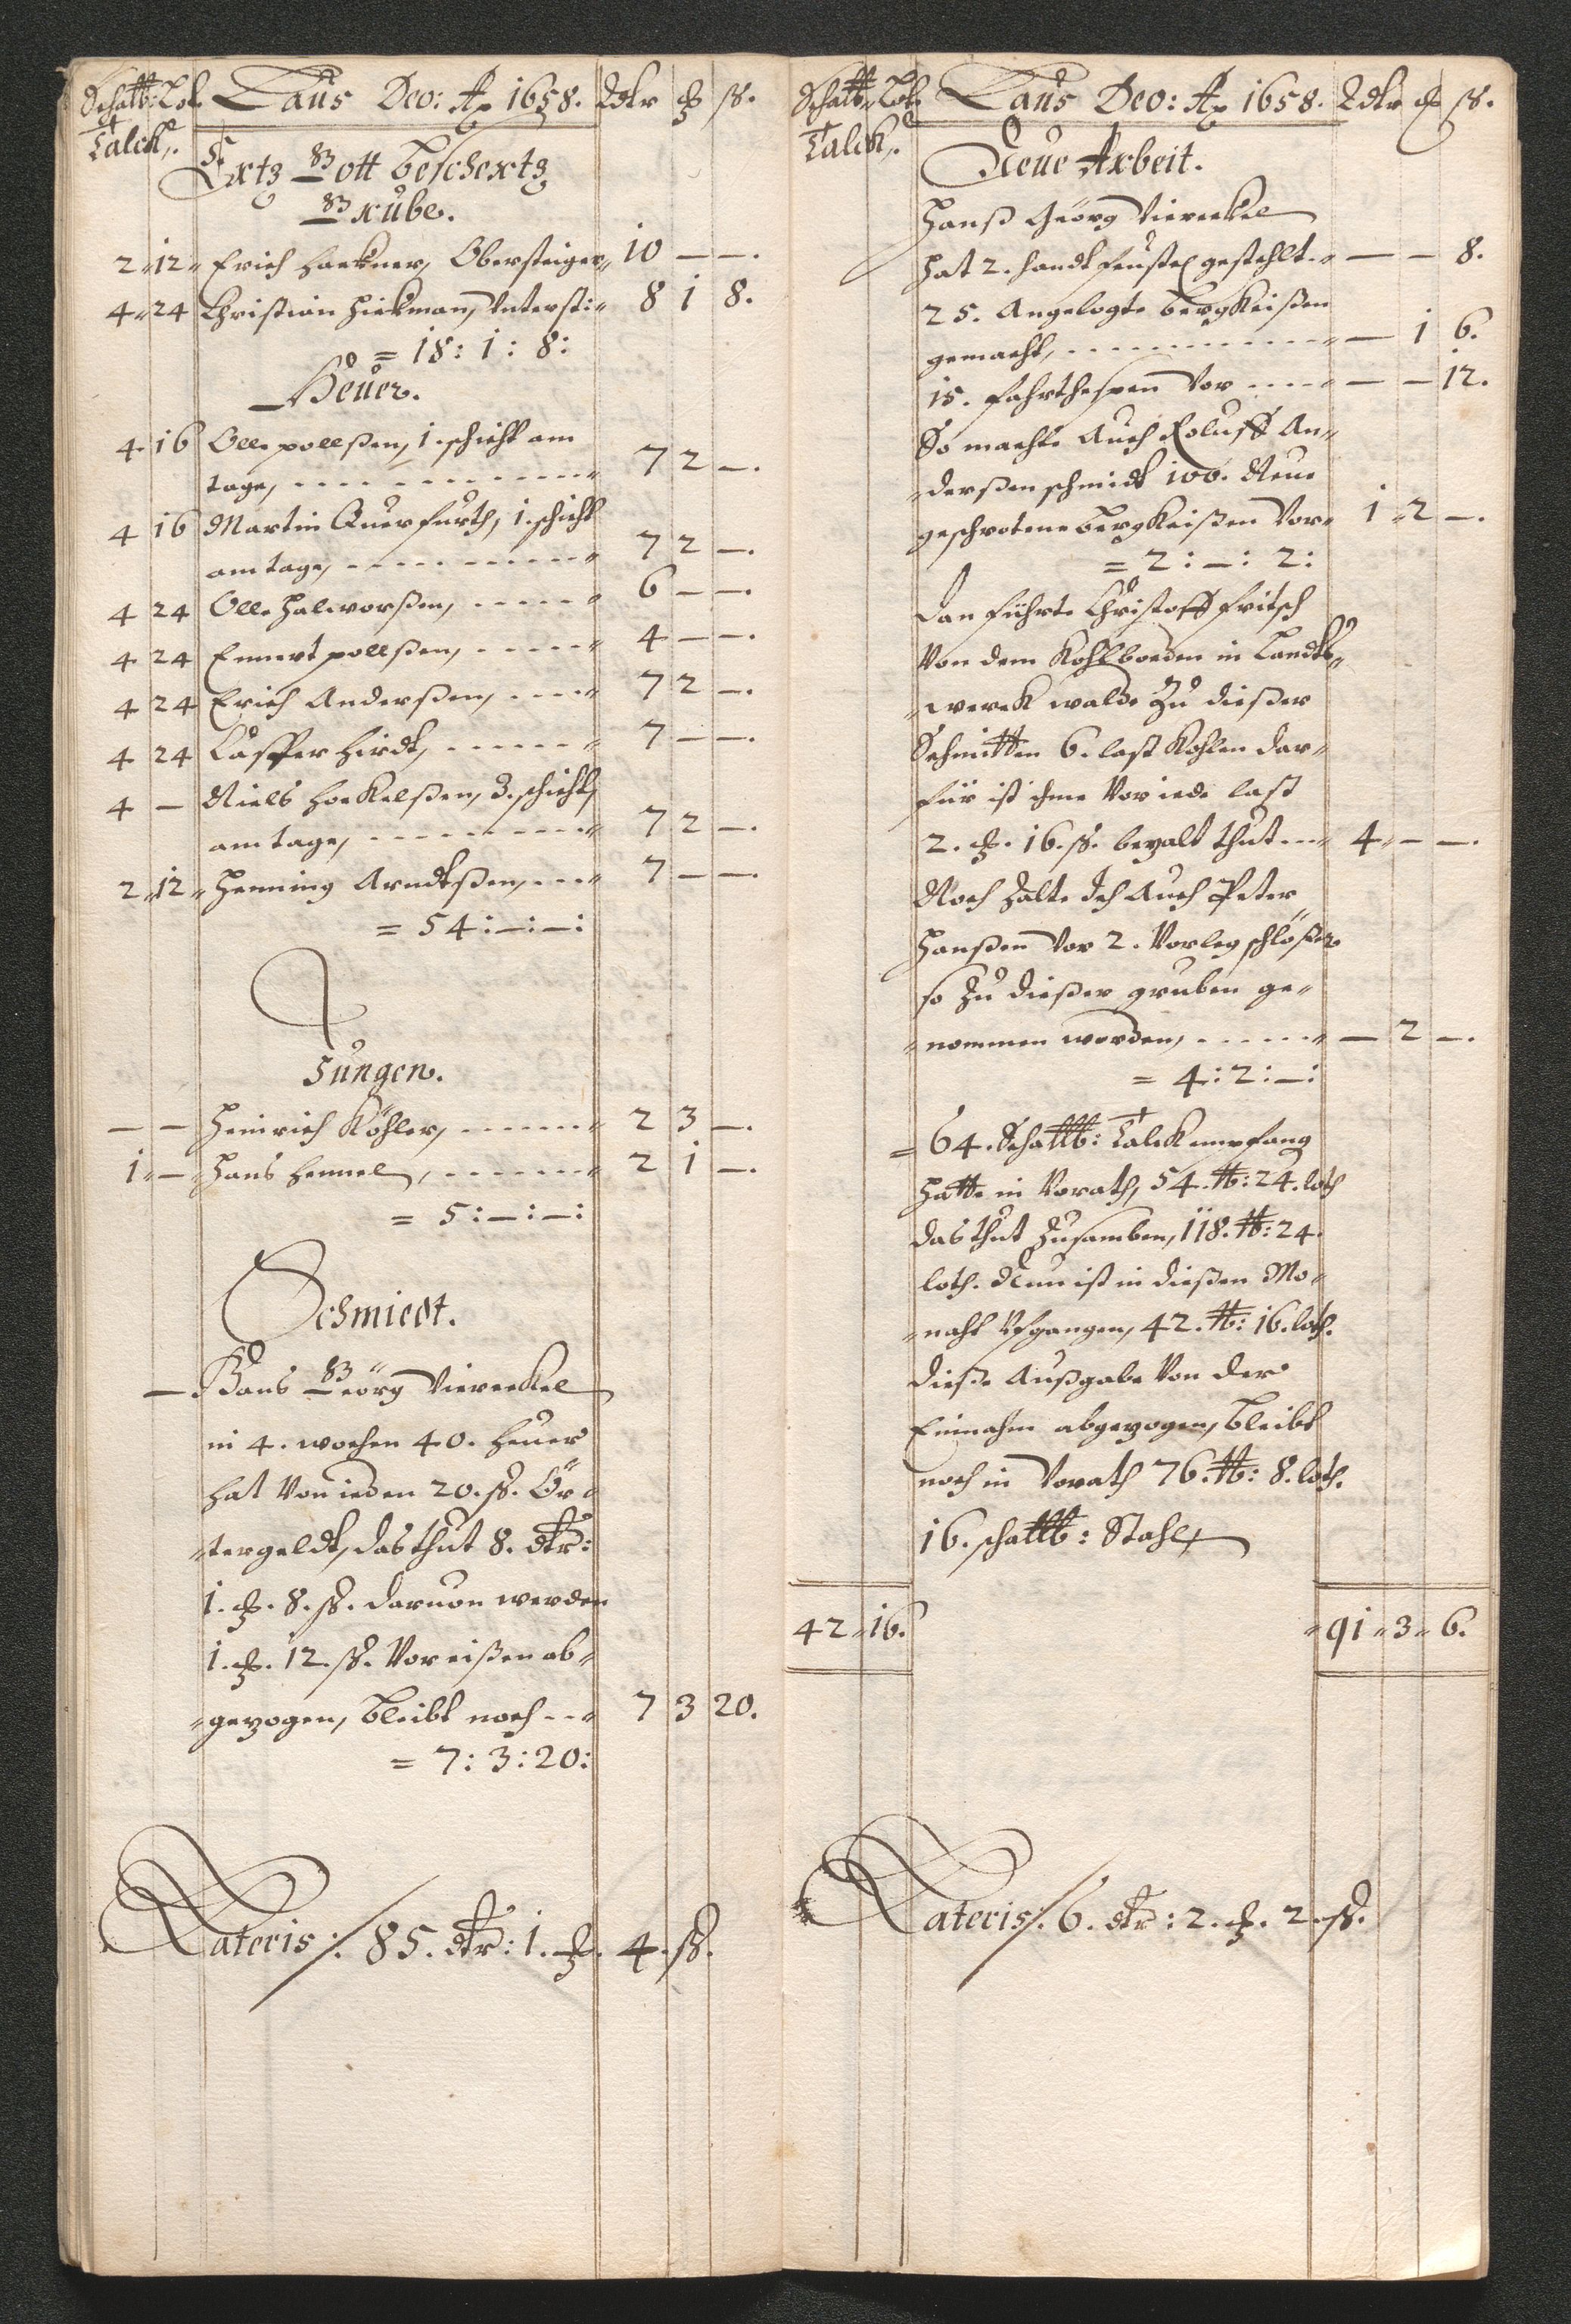 Schalt℔: Lot. Laus Deo: Aō 1658. Rdtr ꝗ ß.
Talck,.
5.
Ertz Gott bescherts
Grube.
2 " 12 " Erich Hackner, Obersteiger " 10 — —.
4 " 24 Christian Hickman, Untersti " 8 1 8.
= 18 : 1 : 8 :
Heüer.
4 16 Olle pollßen, 1. schicht am
tage, " 7 2 —.
4 16 Martin Querfurth, 1. schicht
am tage, " 7 2 —.
4 24 Olle Halworßen, " 6 — —.
4 24 Ennert pollßen, " 4 — —.
4 24 Erich Anderßen, " 7 2 —.
4 24 Casper Hirdt, " 7 — —.
4 — Niels Hockelßen, 3. schicht,
am tage, " 7 2 —.
2 " 12 " Henning Arndtßen, " 7 — —.
= 54 : — : — :
Jungen.
— — Heinrich Köhler, " 2 3 —.
1 " — Hans Hennel, " 2 1 —.
= 5 : — : — :
Schmiedt.
— Hans Geörg Viereckel
in 4. wochen 40. Heuer
hat Von ieden 20. ß. Ör "
" tergeldt, das thut 8. dtr :
1. ꝗ. 8. ß. daruon werden
1. ꝗ. 12. ß. Vor eißen ab "
" gezogen, bleibt noch " 7 3 20.
= 7 : 3 : 20 :
Lateris : / 85. dtr : 1. ꝗ. 4. ß.
Schalt℔ Lot. Laus Deo: Aō 1658. Rdtr ꝗ ß.
Talck,.
Neue Arbeit.
Hanß Geörg Viereckel
hat 2. handt feustel gestehlt. " — — 8.
25. Angelegte bergkeißen
gemacht, " — 1 6.
15. fahrthespen Vor " — — 12.
So machte Auch Roluff An "
" derßen schmidt 100. Neue
geschrotene bergkeißen Vor " 1 " 2 —.
= 2 : — : 2 :
Dan führte Christoff fritsch
Von dem Kohlboeden in Landts "
" werck walde Zu dießer
Schmitten 6. last Kohlen dar "
für ist ihme Vor iede last
2. ꝗ. 16. ß. bezalt thut " 4 " — —.
Noch Zalte Ich Auch Peter
Hanßen Vor 2. Vorlegschlößer
so Zu dießer gruben ge "
" nommen worden, " — 2 —.
= 4 : 2 : — :
= 64. Schalt℔ : Talck empfang
hatte in Vorath, 54. ℔ : 24. loth
das thut Zusamben, 118. ℔ : 24.
loth. Nun ist in dießen Mo "
" naht Ufgangen, 42. ℔ : 16. loth.
Dieße Außgabe Von der
Einnahm abgezogen, bleibt
noch in Vorath 76. ℔ : 8. loth.
16. schalt℔ : Stahl,
42 " 16. " 91 " 3 " 6.
Lateris : / 6. dtr : 2. ꝗ. 2. ß.